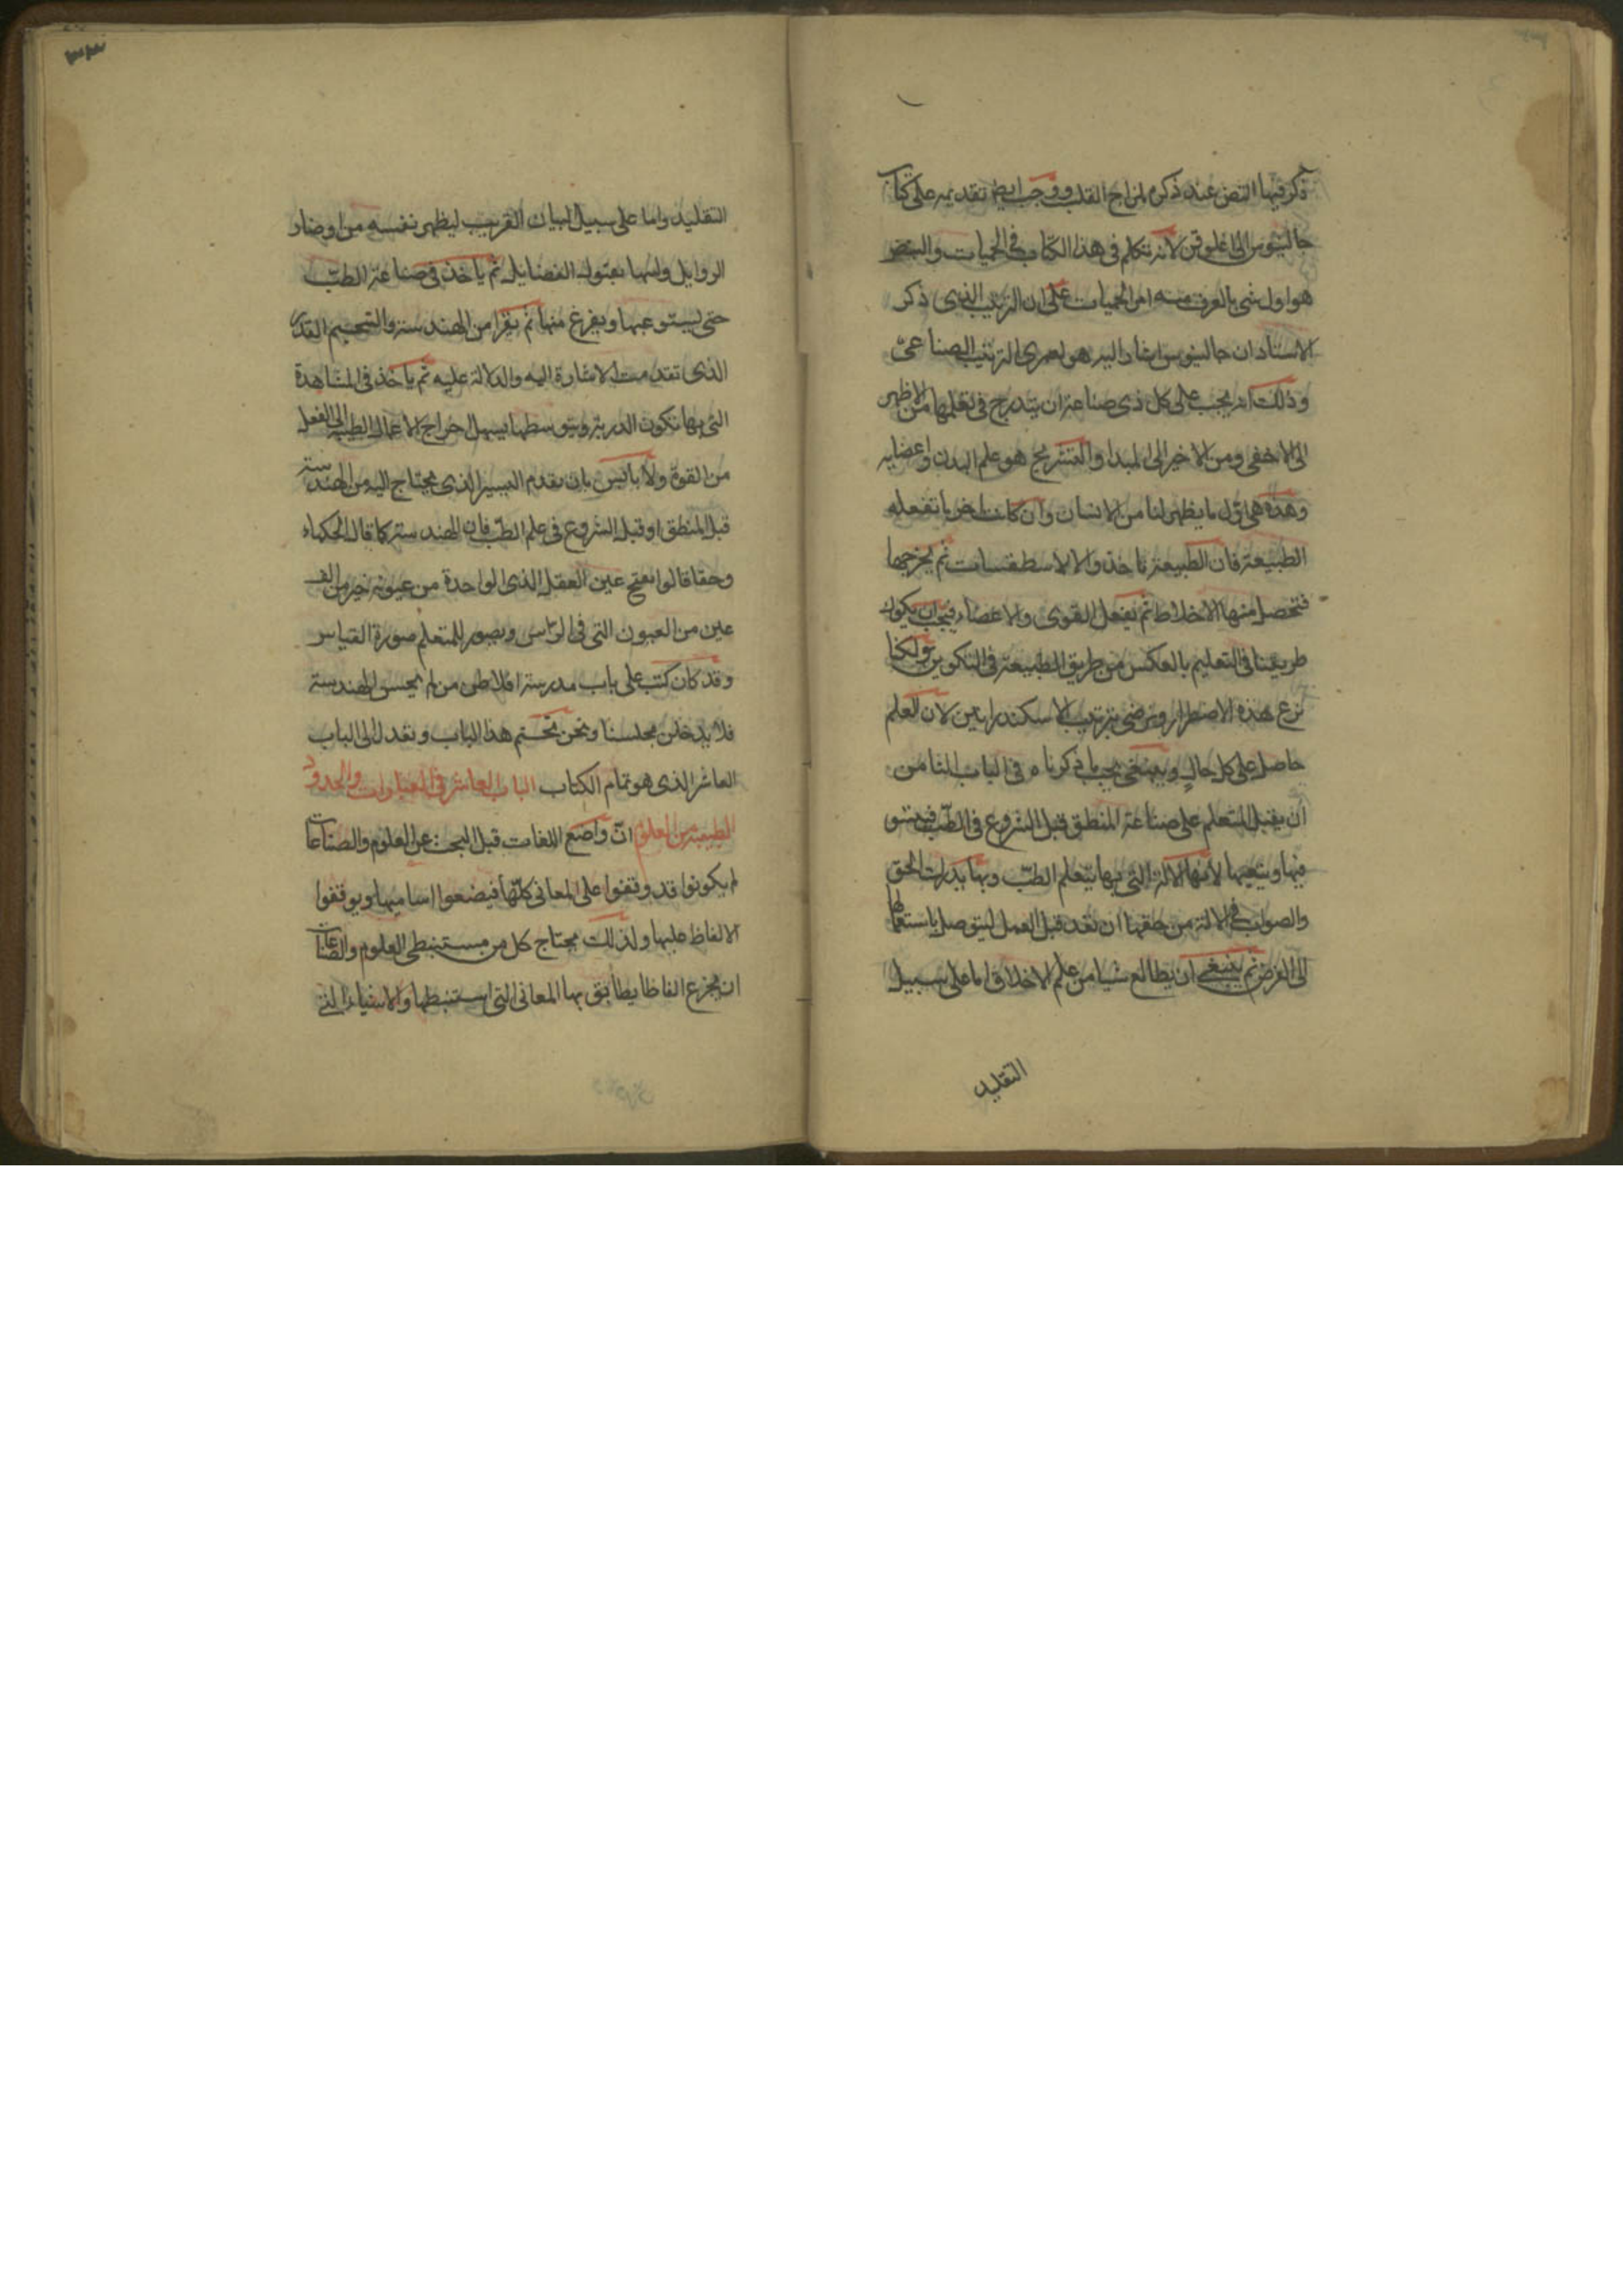 ذكر فيها النبض عند ذكره لمزاج القلب ووجب ايضا تقديمه على كتاب
جالينوس الى اغلوقن لانه تكلم في هذا الكتاب في الحميات والنبض
هو اول شي بالعرف منه امر الحميات على ان الترتيب الذي ذكر
الاستاد ان جالينوس اشار اليه هو لعمري الترتيب الصناعي
وذلك انه يجب على كل ذي صناعة ان يتدرج في تعلمها من الاظهر
الى الاخفى ومن الاخير الى المبدا والتشريح هو علم البدن واعضايه
وهذه هي اول ما يظهر لنا من الانسان وان كانت اخر ما تفعله
الطبيعة فان الطبيعة تاخذ والا الاسطقسات ثم يخرجها
فتحصل منها الاخلاط ثم تفعل القوى والاعضاء فيجب ان يكون
طريقنا في التعليم بالعكس من طريق الطبيعة في التكوين ولكنا
نزع هذه الاضطرار ونرضى بترتيب الاسكندرانيين لان العلم
حاصل على كل حال وينبغي بحسب ما ذكرناه في الباب الثامن
ان يقبل المتعلم على صناعة المنطق قبل الشروع في الطب
فيها ويتعبها لانها الالة التي بها يتعلم الطب وبها يدرك الحق
والصواب في الالة من حقها ان تعد قبل العمل ليتوصل باستعمالها
الى الغرض ثم ينبغي ان يطالع شيا من علم الاخلاق اما على سبيل
التقليد
٣٣
التقليد واما على سبيل البيان القريب ليظهر نفسه من اوضار
الروايل ولينها بقبول الفضايل ثم ياخذ في صناعة الطب
حتى يستوعبها ويفرغ منها ثم يقرا من الهندسة والتنجيم القدر
الذي تقدمت الاشارة اليه والدلالة عليه ثم ياخذ في المشاهدة
التي بها تكون الدربة وبتوسطها يسهل اخراج الاعمال الطبية الى الفعل
من القوة ولا باليس بان يقدم اليسير الذي يحتاج اليه من الهندسة
قبل المنطق او قبل الشروع في علم الطب فان الهندسة كما قال الحكماء
وحقا قالوا يفتح عين العقل الذي الواحدة من عيونه خير من الف
عين من العيون التي في الراس ويصور للمتعلم صورة القياس
وقد كان كتب على باب مدرسة افلاطن من لم يحسن الهندسة
فلا يدخلن مجلسنا ونحن نختم هذا الباب ونعدل الى الباب
العاشر الذي هو تمام الكتاب الباب العاشر في العبارات والحدود
الطبية من العلوم ان واضع اللغات قبل البحث عن العلوم والصناعات
لم يكونوا قد وقفوا على المعاني كلها فيضعوا اساميها ويوقفوا
الالفاظ عليها ولذلك يحتاج كل من مستنبطي العلوم والصناعات
ان يخترع الفاظا يطابق بها المعاني التي استنبطها والاشياء التي